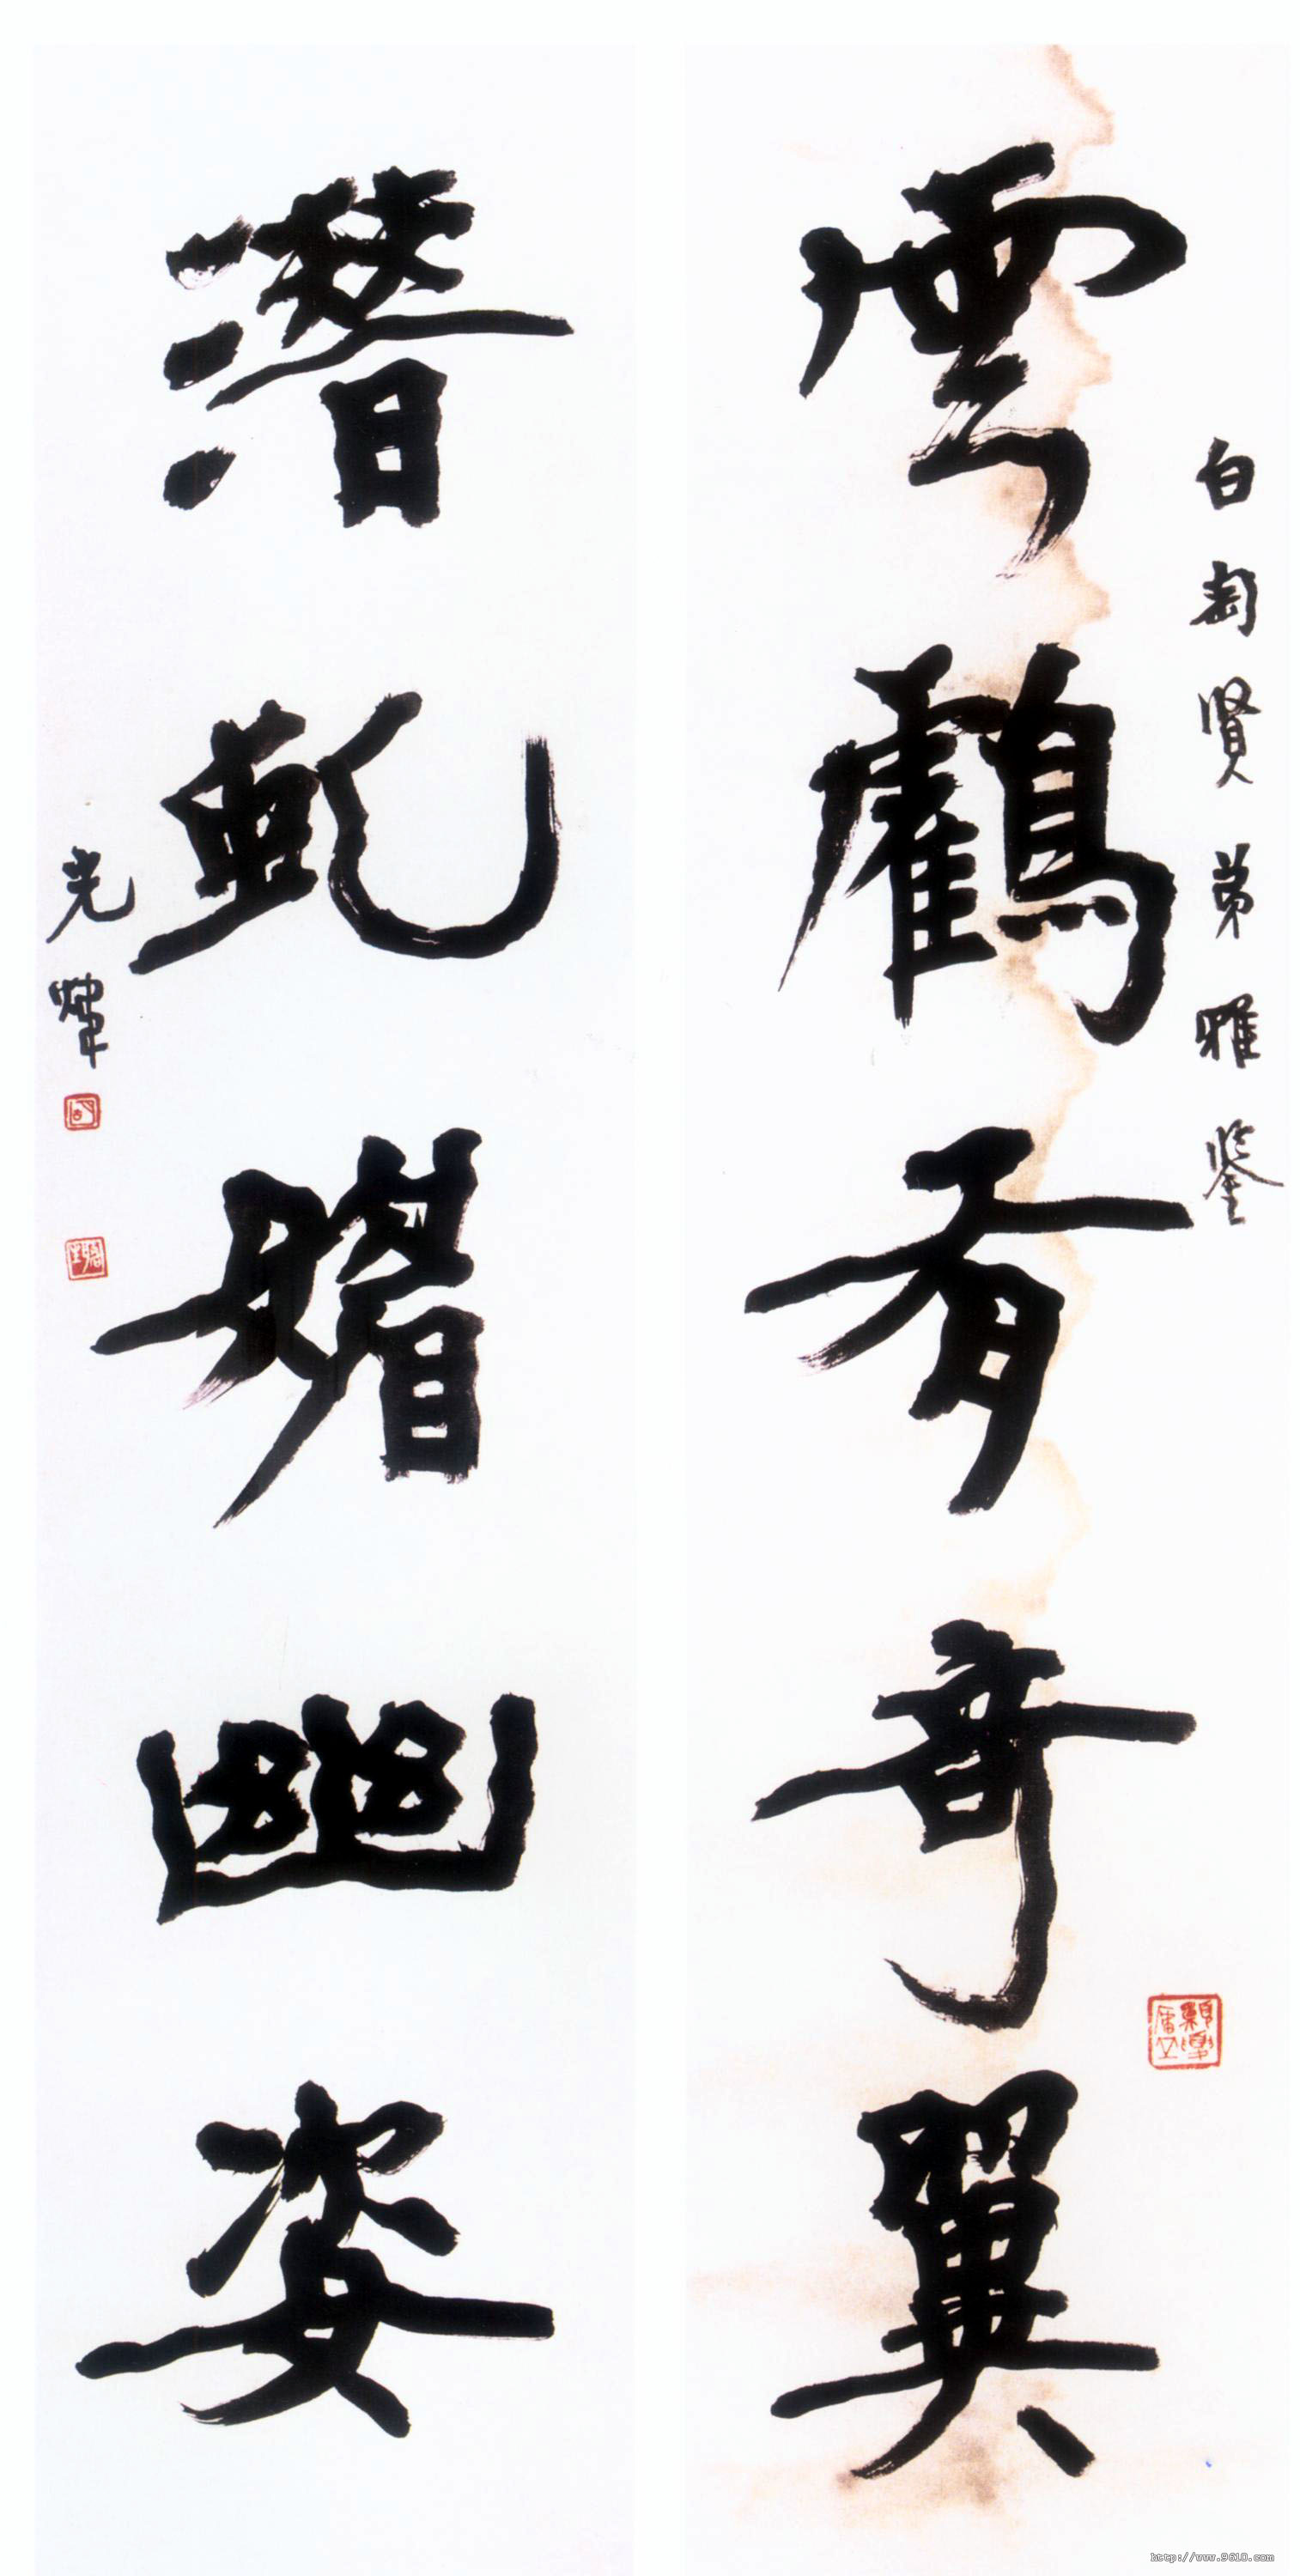 白匋賢弟雅鑒
雲鶴有奇翼
潛虬媚幽姿
光煒
http://www.9610.com